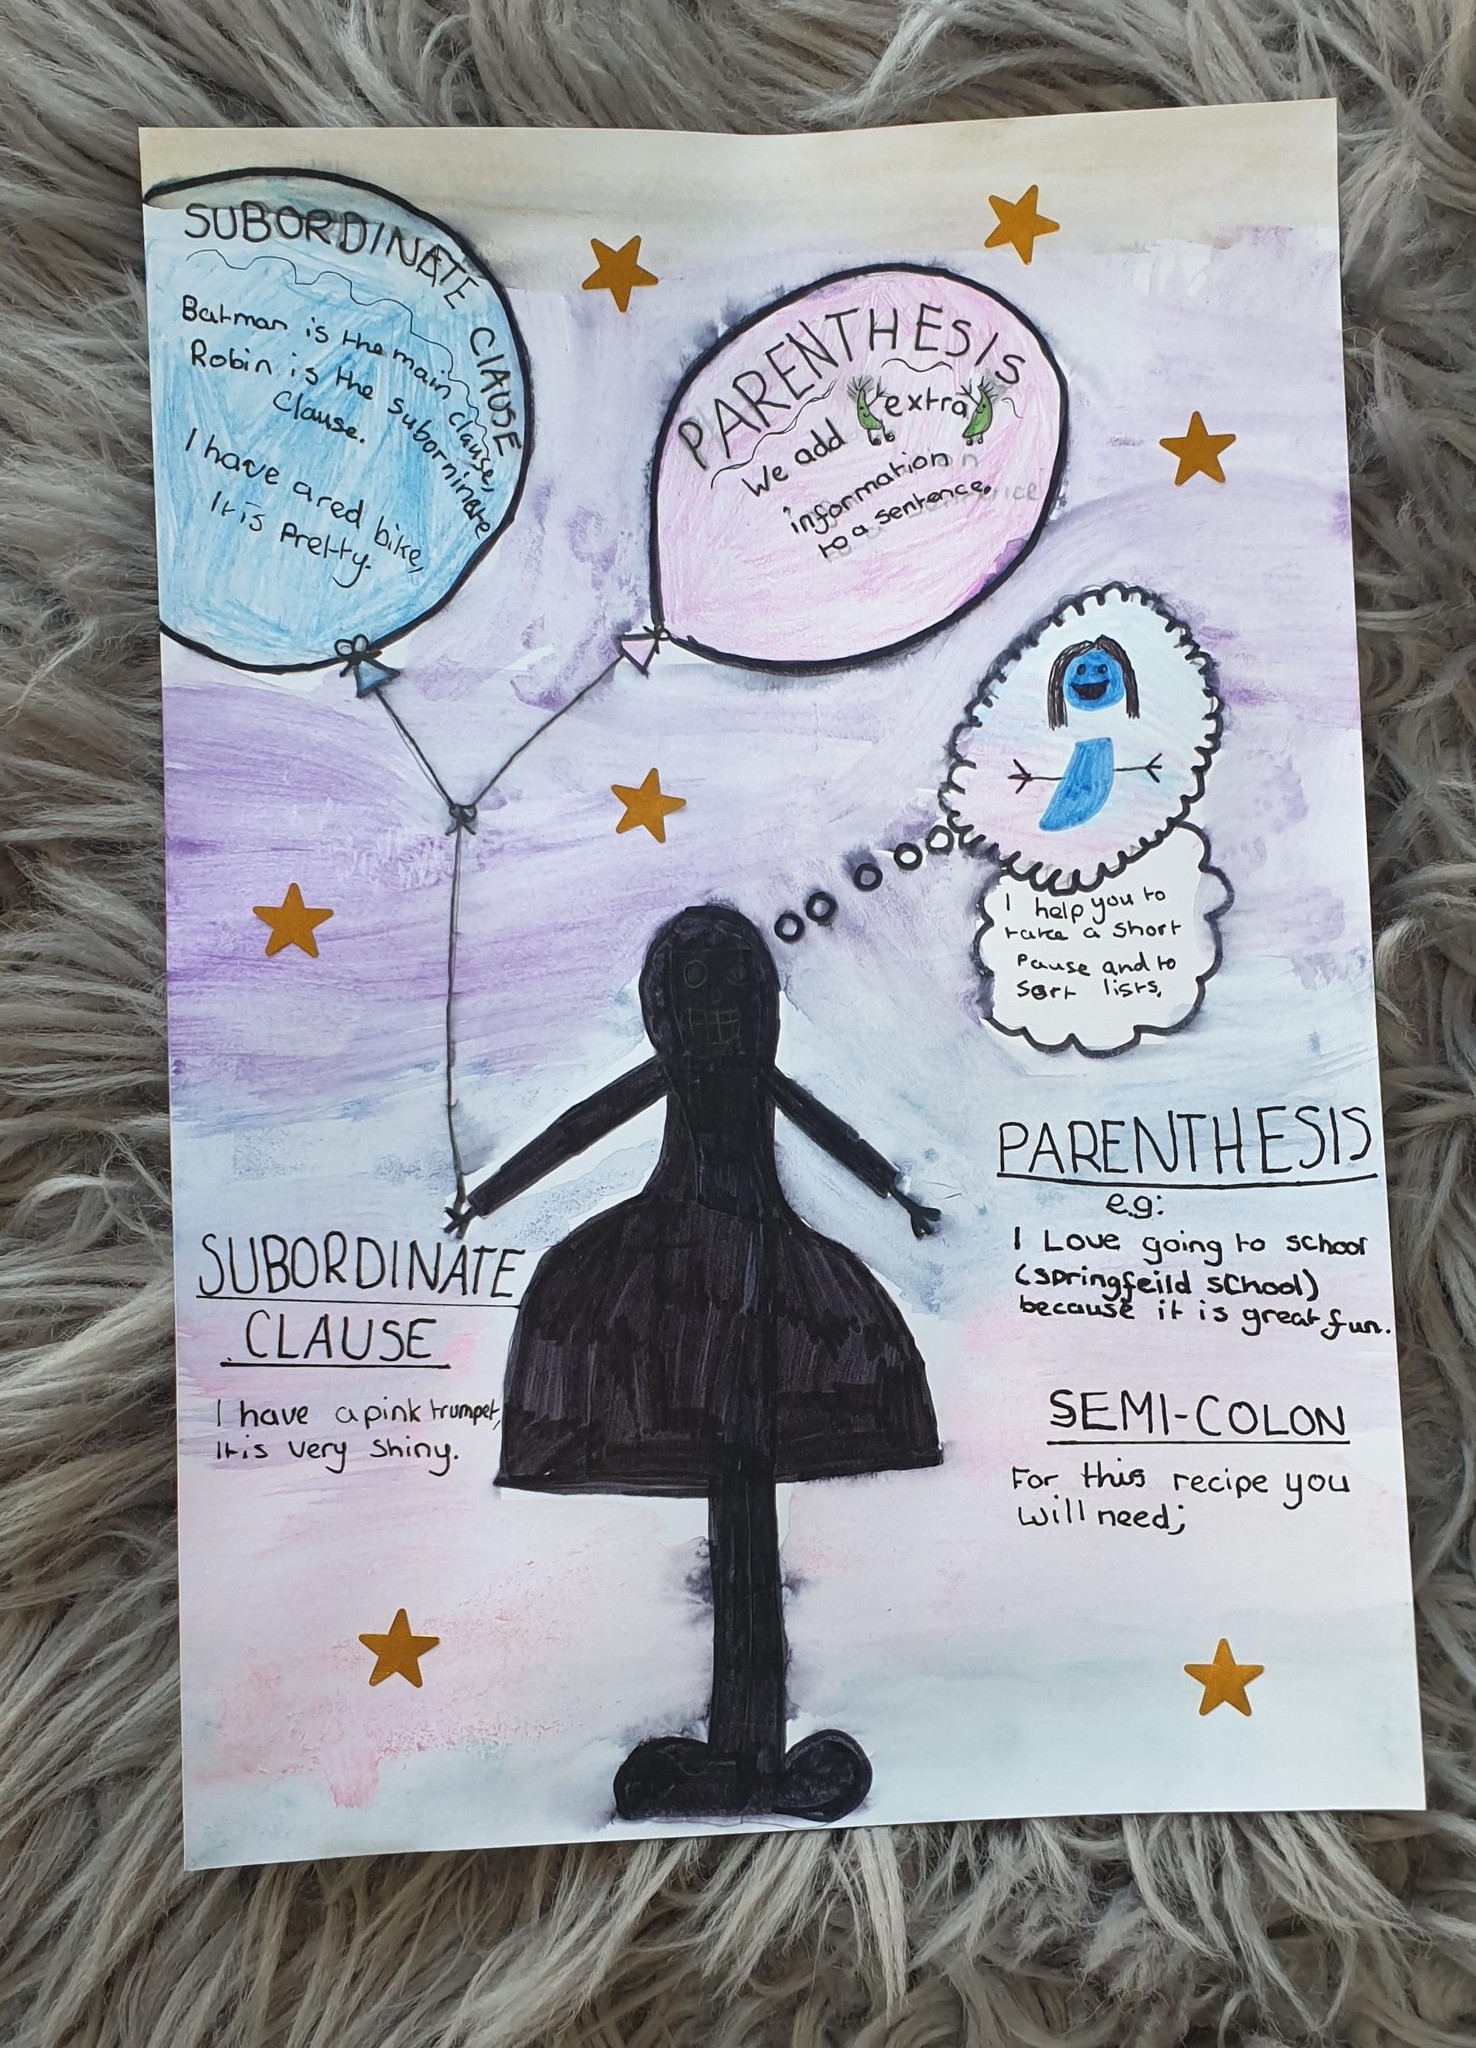 SUBORDINATE CLAUSE
Batman is the main clause,
Robin is the suborninate
Clause.
I have a red bike,
It is Pretty.
PARENTHESIS
We add extra
information
to a sentence.
I help you to
take a short
Pause and to
Sort lists,
PARENTHESIS
e.g:
I Love going to school
(springfeild school)
because it is great fun.
SUBORDINATE
CLAUSE
I have a pink trumpet,
It is very shiny.
SEMI-COLON
For this recipe you
will need;